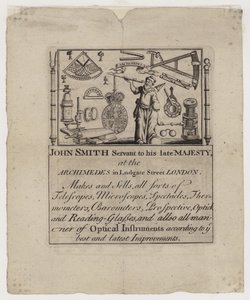 JOHN SMITH Servant to his late MAJESTY,
at the
ARCHIMEDES in Ludgate Street LONDON.
Makes and Sells, all sorts of
Telescopes, Microscopes, Spectacles, Ther-
mometers, Barometers, Prospective, Optick
and Reading-Glasses, and allso all man-
-ner of Optical Instruments according to ye
best and latest Improvements.